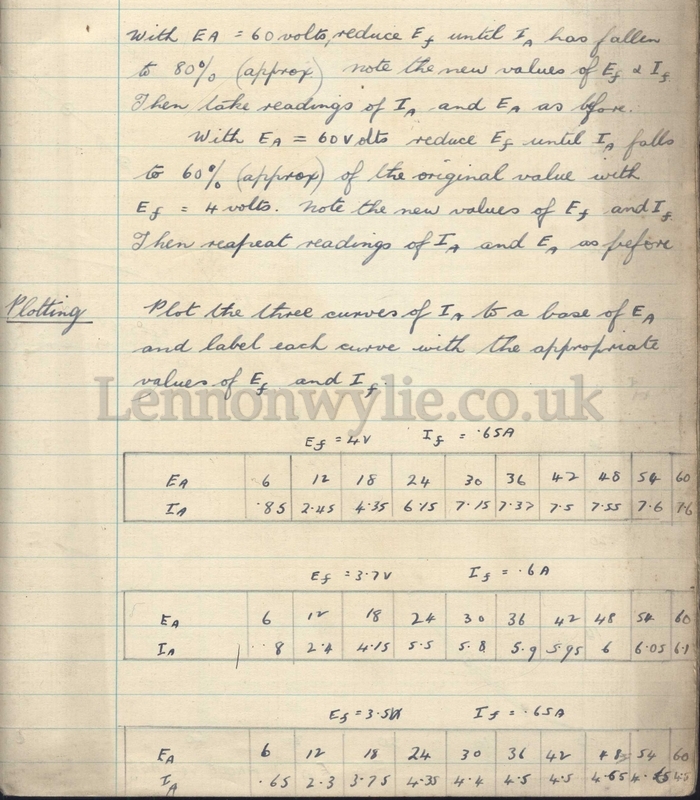 With EA = 60 volts, reduce Ef until IA has fallen
to 80% (approx) note the new values of Ef & If
Then take readings of IA and EA as before.
With EA = 60 Volts reduce Ef until IA falls
to 60% (approx) of the original value with
Ef = 4 volts. Note the new values of Ef and If
Then reapeat readings of IA and EA as before
Plotting Plot the three curves of IA to a base of EA
and label each curve with the appropriate
values of Ef and If.
Lennonwylie.co.uk
Ef = 4V If = .65A
EA 6 12 18 24 30 36 42 48 54 60
IA .85 2.45 4.35 6.15 7.15 7.37 7.5 7.55 7.6 7.6
Ef = 3.7V If = .6A
EA 6 12 18 24 30 36 42 48 54 60
IA .8 2.4 4.15 5.5 5.8 5.9 5.95 6 6.05 6.1
Ef = 3.5V If = .65A
EA 6 12 18 24 30 36 42 48 54 60
IA .65 2.3 3.75 4.35 4.4 4.5 4.5 4.55